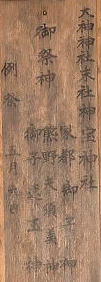 大神神社末社神宝神社
御祭神
家都御子神
熊野夫須美神
御子速玉神
例祭 五月六日